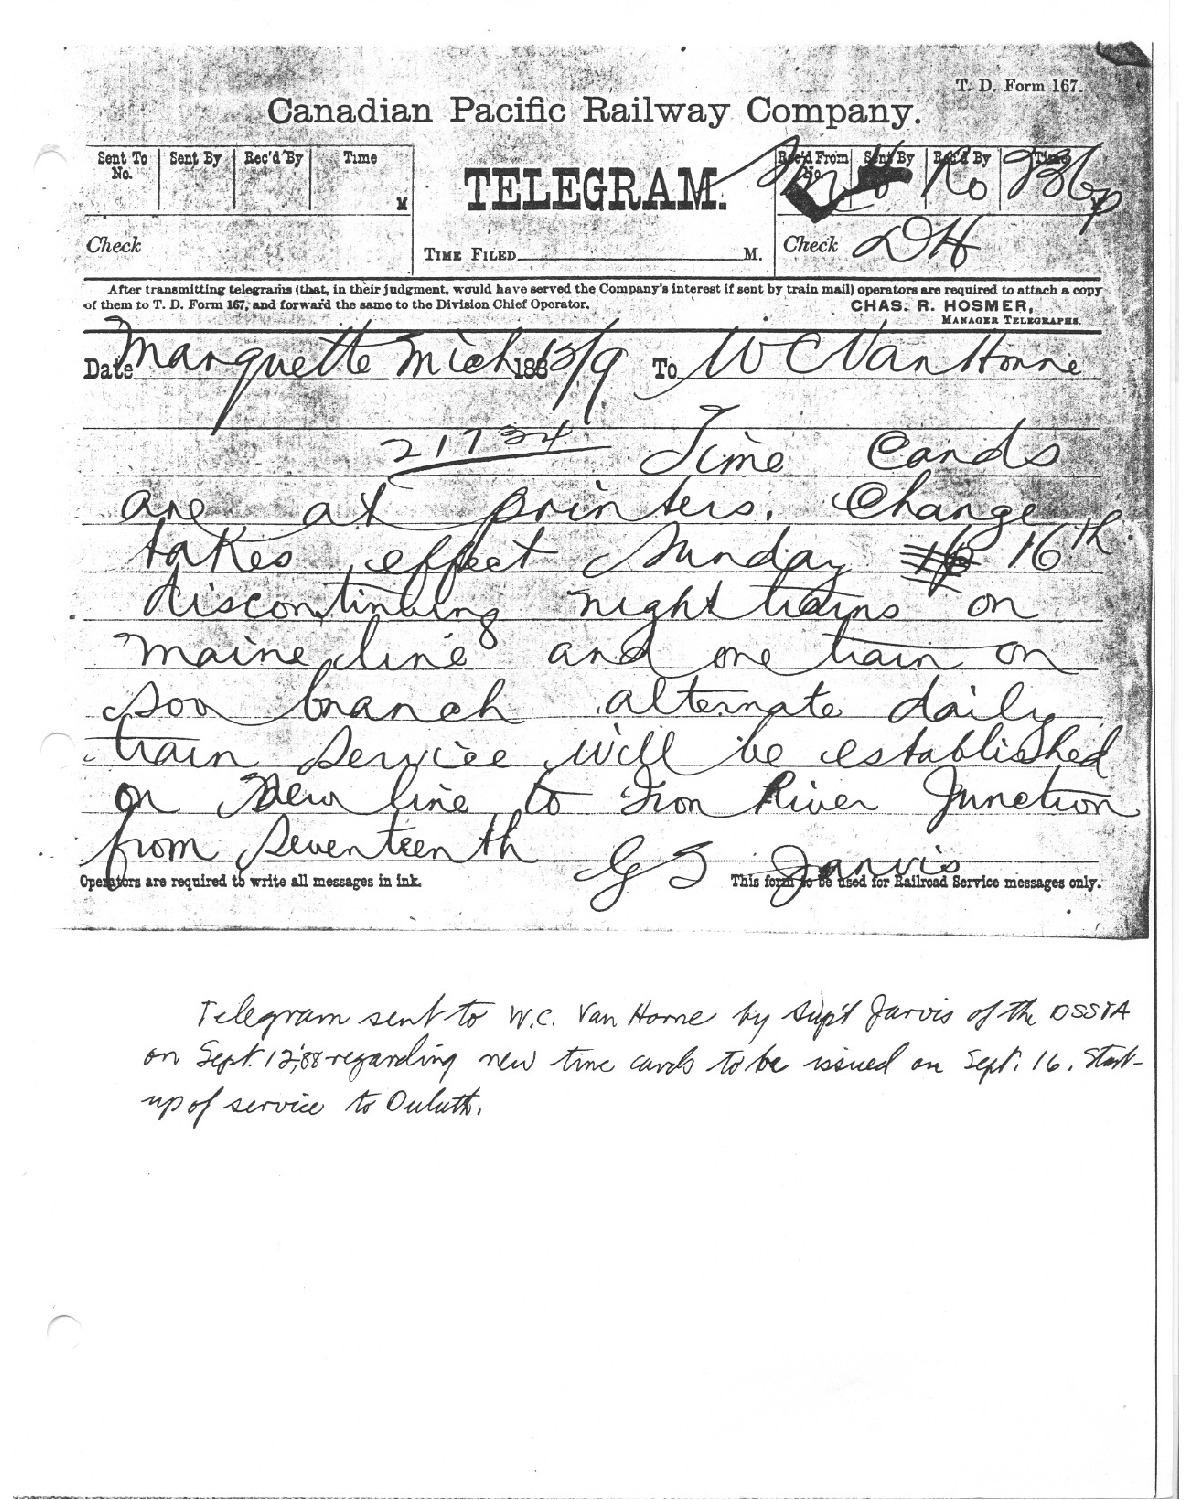 T. D. Form 167.
Canadian Pacific Railway Company.
Sent To No. Sent By Rec'd By Time M
TELEGRAM.
Rec'd From No. Sent By Rec'd By Time
Ro 236p
Check
TIME FILED M.
Check DH
After transmitting telegrams (that, in their judgment, would have served the Company's interest if sent by train mail) operators are required to attach a copy
of them to T. D. Form 167, and forward the same to the Division Chief Operator.
CHAS. R. HOSMER,
MANAGER TELEGRAPHS.
Date Marquette Mich 188 /9 To W C Van Horne
21734 Time Cards
are at printers. Change
takes effect Sunday 16th
discontinuing night trains on
maine line and one train on
soo branch alternate daily
train service will be established
on New line to Iron River Junction
from Seventeenth G S Jarvis
Operators are required to write all messages in ink. This form to be used for Railroad Service messages only.
Telegram sent to W.C. Van Horne by Sup't Jarvis of the DSS&A
on Sept. 12, 88 regarding new time cards to be issued on Sept. 16. Start-
up of service to Duluth.